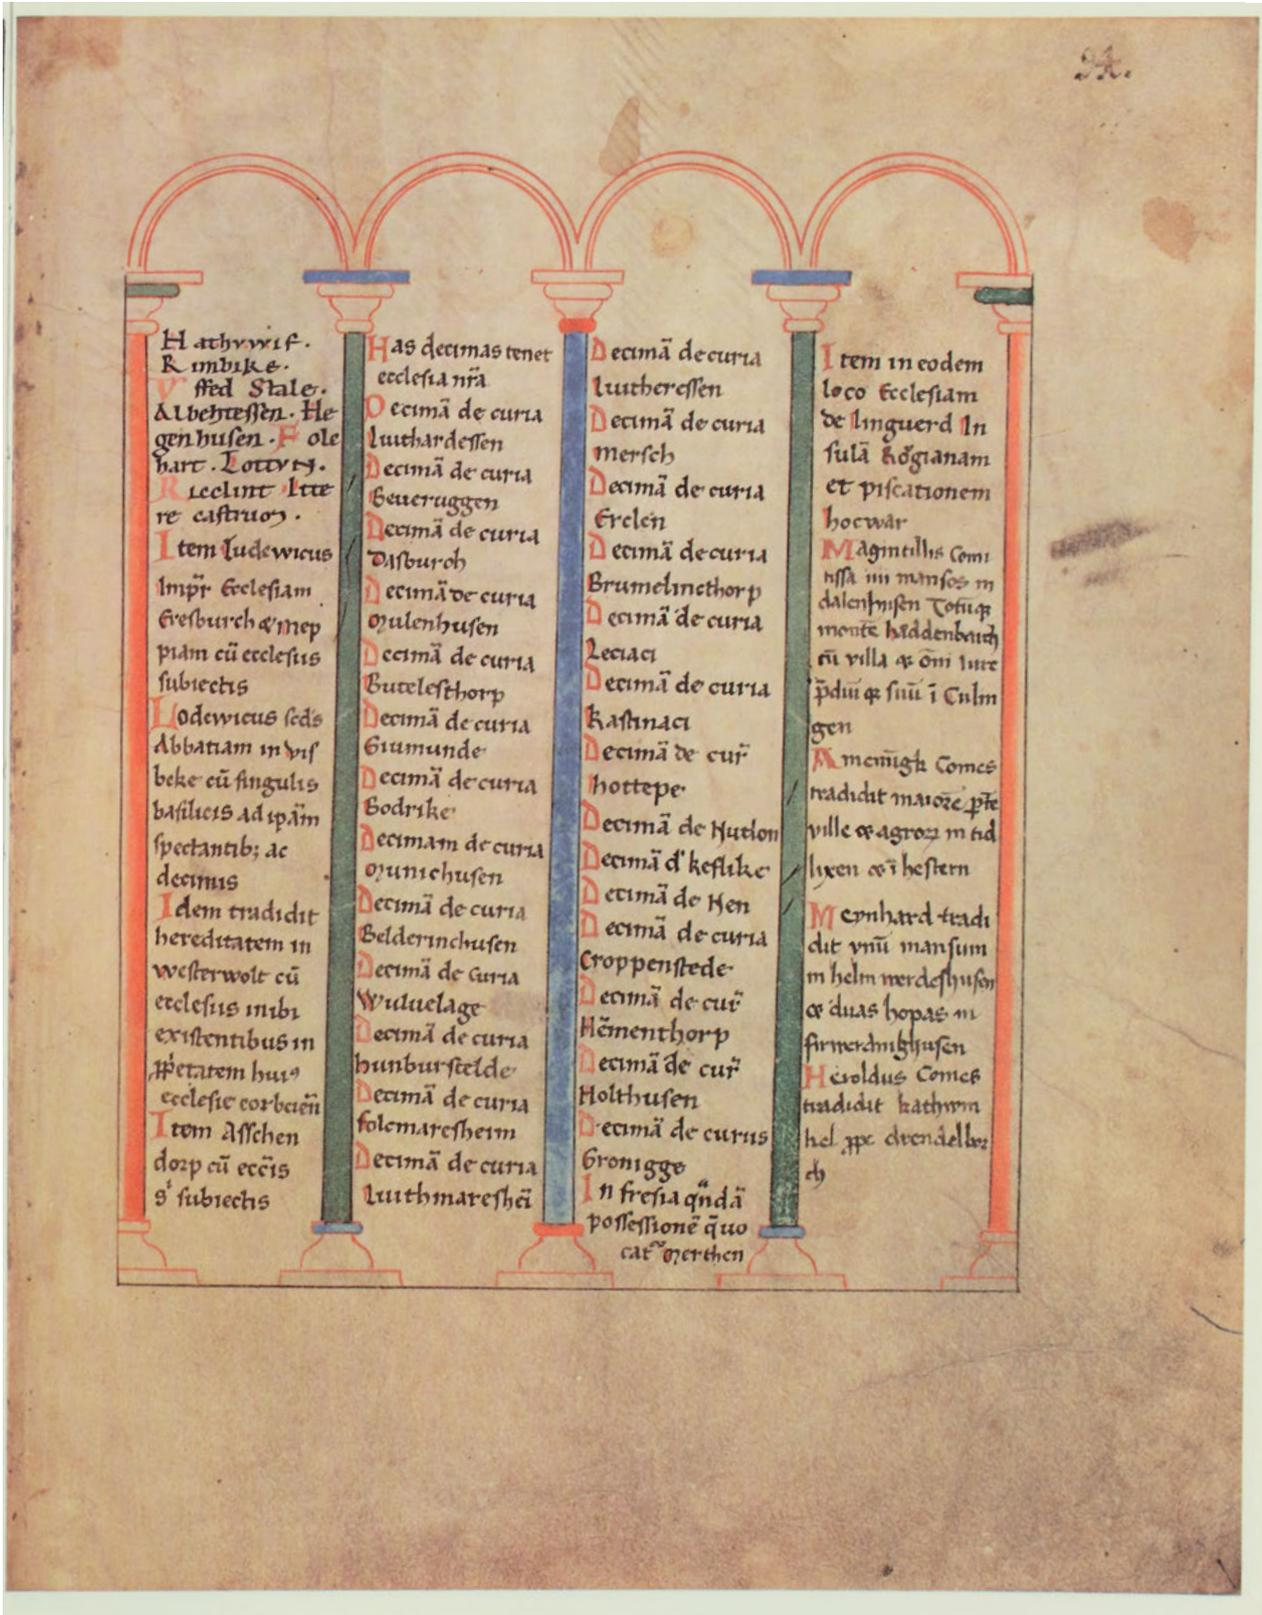 24.
Hathvvif.
Rimbike.
Vffed Stale.
Albehtessen. He
genhusen. Fole
hart. Tottvn.
Recline Itte
re castruoꝝ.
Item Ludewicus
Imp̄r Ecclesiam
Eresburch & mep
piam cū ecclesiis
subiectis
Lodewicus scds
Abbatiam in vis
beke cū singulis
basilicis ad ip̄am
spectantib; ac
decimis
Idem tradidit
hereditatem in
westerwolt cū
ecclesiis inibi
existentibus in
ꝓp̄etatem huiꝰ
ecclesie corbeien̄
Item Asschen
dorp cū ecc̄is
s' subiectis
Has decimas tenet
ecclesia nr̄a
Decimā de curia
Luithardessen
Decimā de curia
Beueruggen
Decimā de curia
Dasburch
Decimā de curia
Mulenhusen
Decimā de curia
Butelesthorp
Decimā de curia
Giumunde
Decimā de curia
Godrike
Decimam de curia
Munichusen
Decimā de curia
Belderinchusen
Decimā de curia
Wuluelage
Decimā de curia
hunburstelde
Decimā de curia
folcmaresheim
Decimā de curia
Luithmareshei̅
Decimā de curia
Luitheressen
Decimā de curia
mersch
Decimā de curia
Erclen
Decimā de curia
Brumelincthorp
Decimā de curia
Leciaci
Decimā de curia
Kastinaci
Decimā de cur̄
hottepe
Decimā de Hutlon
Decimā d' keflike
Decimā de Hen
Decimā de curia
Croppenstede
Decimā de cur̄
Hēmenthorp
Decimā de cur̄
Holthusen
Decimā de curiis
Gronigge
In fresia qn̄dā
possessionē q̄ uo
cat~ Merthen
Item in eodem
loco Ecclesiam
de Linguerd In
sulā Rōgianam
et piscationem
hocwar
Magintillis Comi
tissa iiii mansos in
dalenhusen Totūqꝫ
montē haddenberch
cū villa & om̄i iure
p̄diūqꝫ suū ī Culm
gen
Amelūgk Comes
tradidit maiorē p̄tē
ville & agroꝝ in tid
lixen & ī hestern
Meynhard tradi
dit vnū mansum
in helmwerdeshusen
& duas hopas in
firwerdinghusen
Heroldus Comes
tradidit kathwin
kel ꝓpe drendelber
ch